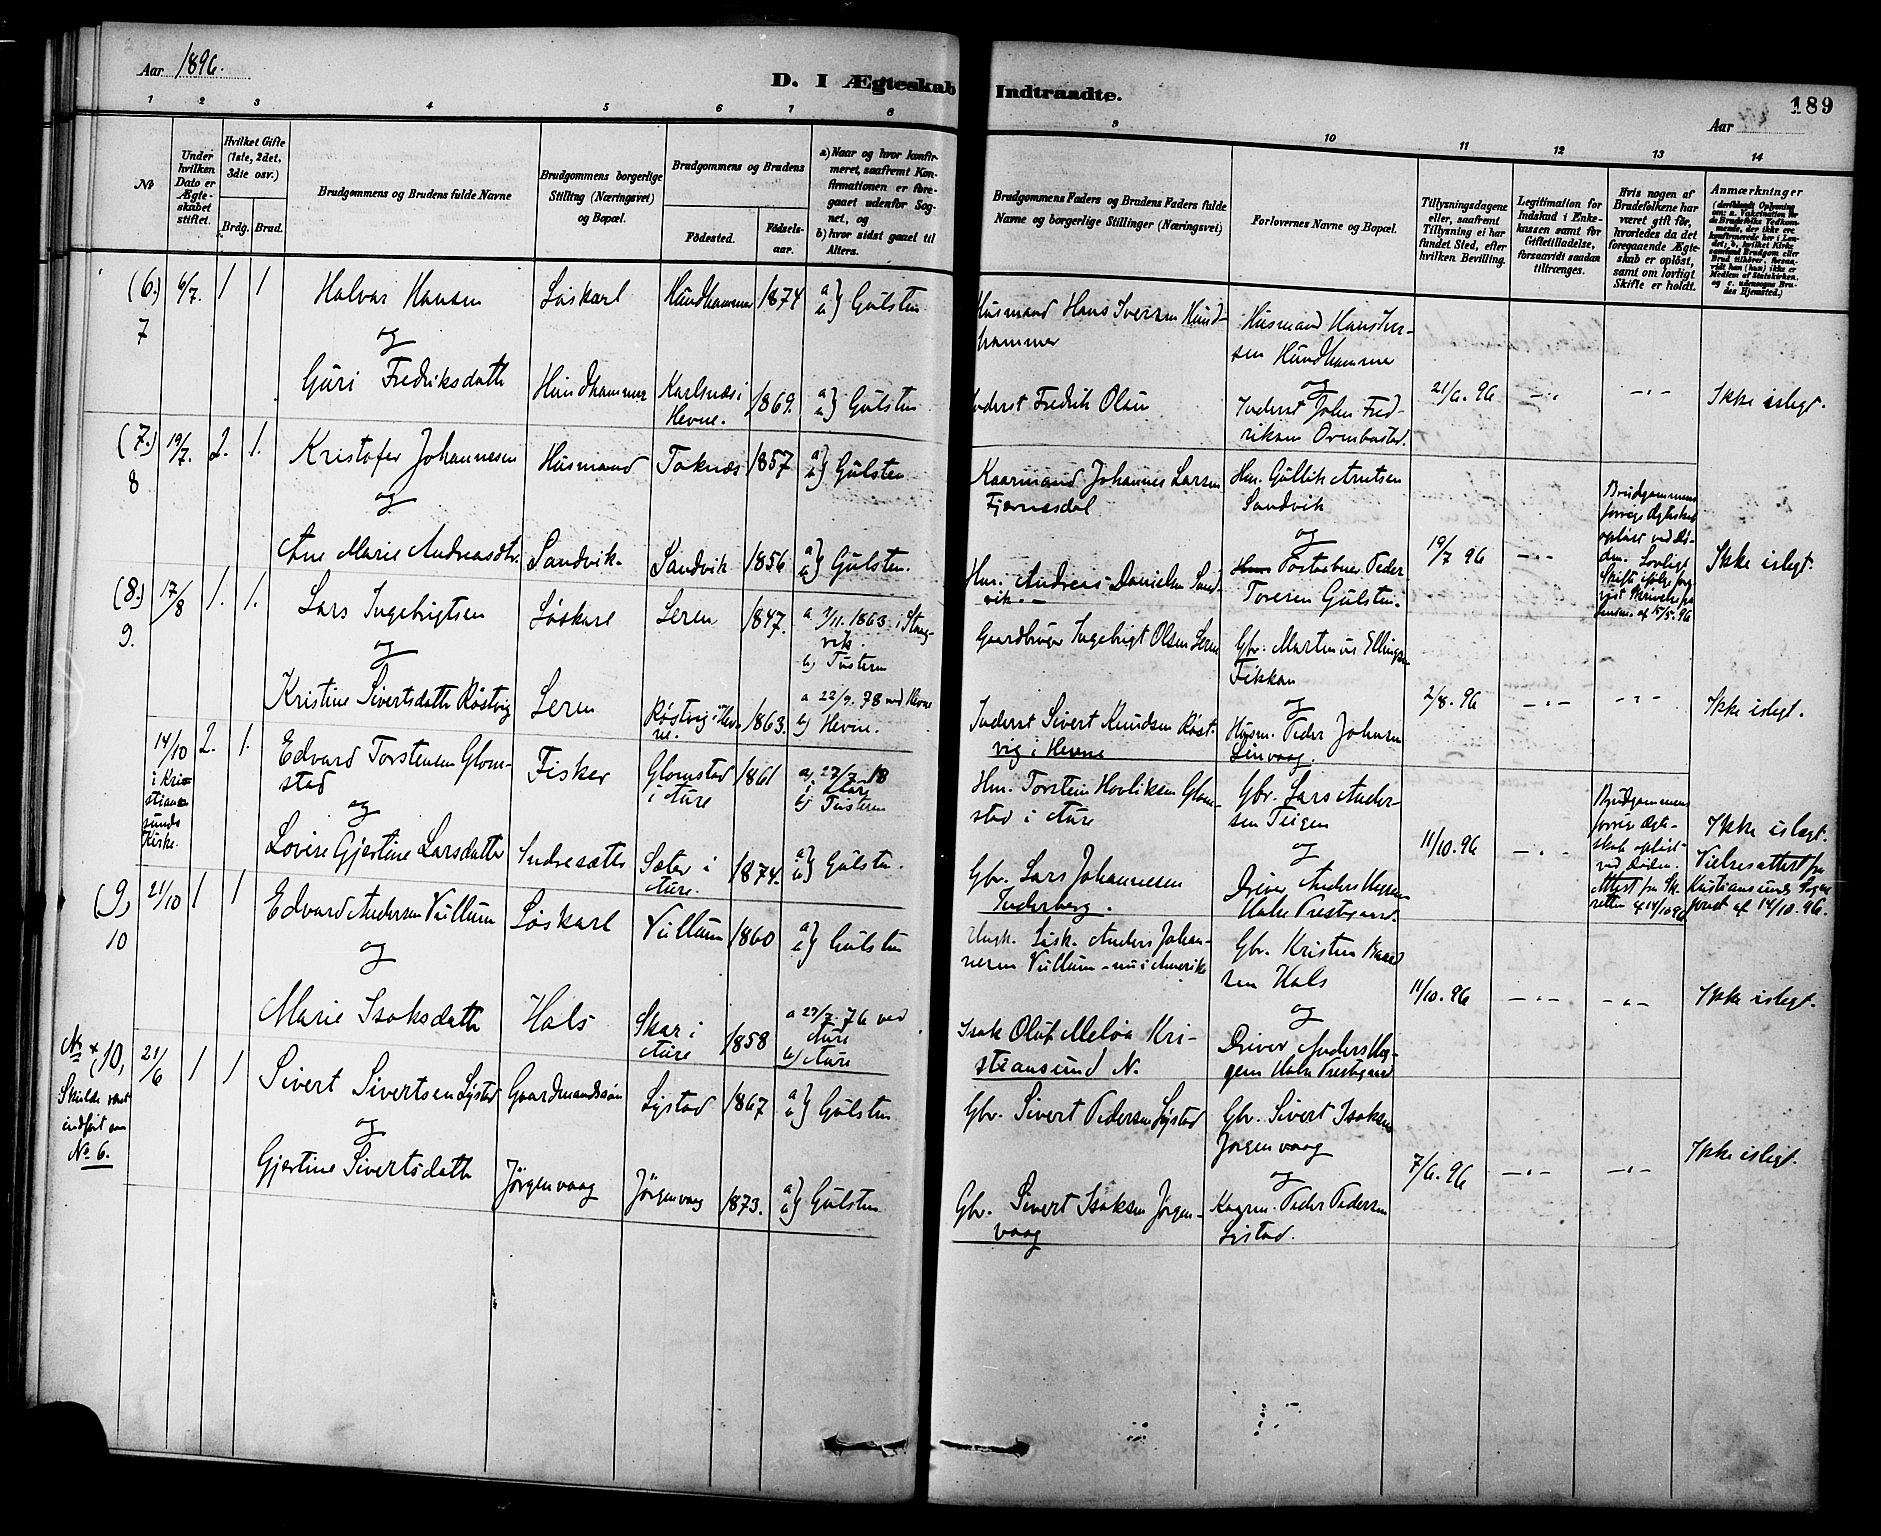 Aar 1896.
D. I Ægteskab Indtraadte.
189
Aar
1 2 3 4 5 6 7 8 9 10 11 12 13 14
№
Under hvilken Dato er Ægteskabet stiftet.
Hvilket Gifte (1ste, 2det, 3die osv.)
Brdg. Brud.
Brudgommens og Brudens fulde Navne
Brudgommens borgerlige Stilling (Næringsvei) og Bopæl.
Brudgommens og Brudens
Fødested.
Fødselsaar.
a) Naar og hvor konfirmeret, saafremt Konfirmationen er foregaaet udenfor Sognet, og
b) hvor sidst gaaet til Alters.
Brudgommens Faders og Brudens Faders fulde Navne og borgerlige Stillinger (Næringsvei)
Forlovernes Navne og Bopæl.
Tillysningsdagene eller, saafremt Tillysning ei har fundet Sted, efter hvilken Bevilling.
Legitimation for Indskud i Enkekassen samt for Giftetilladelse, forsaavidt saadan tiltrænges.
Hvis nogen af Brudefolkene har været gift før, hvorledes da det foregaaende Ægteskab er opløst, samt om lovligt Skifte er holdt.
Anmærkninger
(6.) 7
6/7. 1 1
Halvar Hansen
og
Guri Fredriksdatter
Løskarl
Hundhammer
Hundhammer 1874
Karlsnæs i Hevne. 1869.
a b} Gulsten
a b} Gulsten
Husmand Hans Iversen Hundhammer
Inderst Fredrik Olsen
Husmand Hans Iversen Hundhammer
og
Inderst John Fredriksen Ormbostad.
21/6. 96
-"-
-"-
Ikke islegt.
(7.) 8
19/7. 2. 1.
Kristofer Johannesen
og
Ane Marie Andreasdtr.
Husmand
Sandvik.
Taknæs 1857
Sandvik 1856
a b} Gulsten
a b} Gulsten.
Kaarmand Johannes Larsen Fjernesdal
Hm. Andreas Danielsen Sandvik.
Hm. Gullik Arntsen Sandvik
og
Postaabner Peder Toresen Gulsten.
19/7 96
-"-
Brudgommens forrige Ægteskab opløst ved Døden. Lovligt Skifte
af 15/5. 96
Ikke islegt.
(8.) 9.
17/8 1. 1.
Lars Ingebrigtsen
og
Kristine Sivertsdatter Røstvig
Løskarl
Leren
Leren 1847.
Røstvig i Hevne. 1863.
a 3/11. 1863. i Stangvik.
b) Tustern
a 22/9. 78 ved Hevne
b) Hevne.
Gaardbruger Ingebrigt Olsen Leren
Inderst Sivert Knudsen Røstvig i Hevne
Gbr. Martinus Ellingsen Fikkan
og
Husm. Peder Johansen Linvaag.
2/8. 96
-"-
-"-
Ikke islegt.
14/10 i Kristiansunds Kirke.
2. 1.
Edvard Torstensen Glomstad
og
Lovise Gjertine Larsdatter
Fisker
Indresætter
Glomstad i Aure 1861
Sæter i Aure. 1874.
a) 27/7. 18
b) Tustern
a b} Gulsten.
Hm. Torstein Hovliksen Glomstad i Aure
Gbr. Lars Johannesen Inderberg.
Gbr. Lars Andersen Teigen
og
Driver Anders Mogsen Halse Prestgaard.
11/10. 96
-"-
Brudgommens forrige Ægteskab opløst ved Døden.
Attest fra Skifteretten af 14/10 96
Ikke islægt.
Vielsesattest fra Kristiansunds Sogneprest af 14/10. 96.
(9) 10
21/10 1 1
Edvard Andersen Vullum
og
Marie Isaksdatter
Løskarl
Hals
Vullum 1860
Skar i Aure 1858
a b} Gulsten
a 29/7. 76 ved Aure
b) Aure
Ungk. Løsk. Anders Johannesen Vullum - nu i Amerika
Isak Oluf Meløa Kristiansund N.
Gbr. Kristen Baardsen Hals
og
Driver Anders Mogsen Halse Prestgaard
11/10. 96
-"-
-"-
Ikke islegt.
№ + (10,
Skulde vært indført som № 6.
21/6 1 1
Sivert Sivertsen Lystad
og
Gjertine Sivertsdatter
Gaardmandssøn
Jørgenvaag
Lystad 1867
Jørgenvaag 1873.
a b} Gulsten
a b} Gulsten
Gbr. Sivert Pedersen Lystad
Gbr. Sivert Isaksen Jørgenvaag
Gbr. Sivert Isaksen Jørgenvaag
og
Kaarm. Peder Pedersen Lystad.
7/6. 96
-"-
-"-
Ikke islegt.